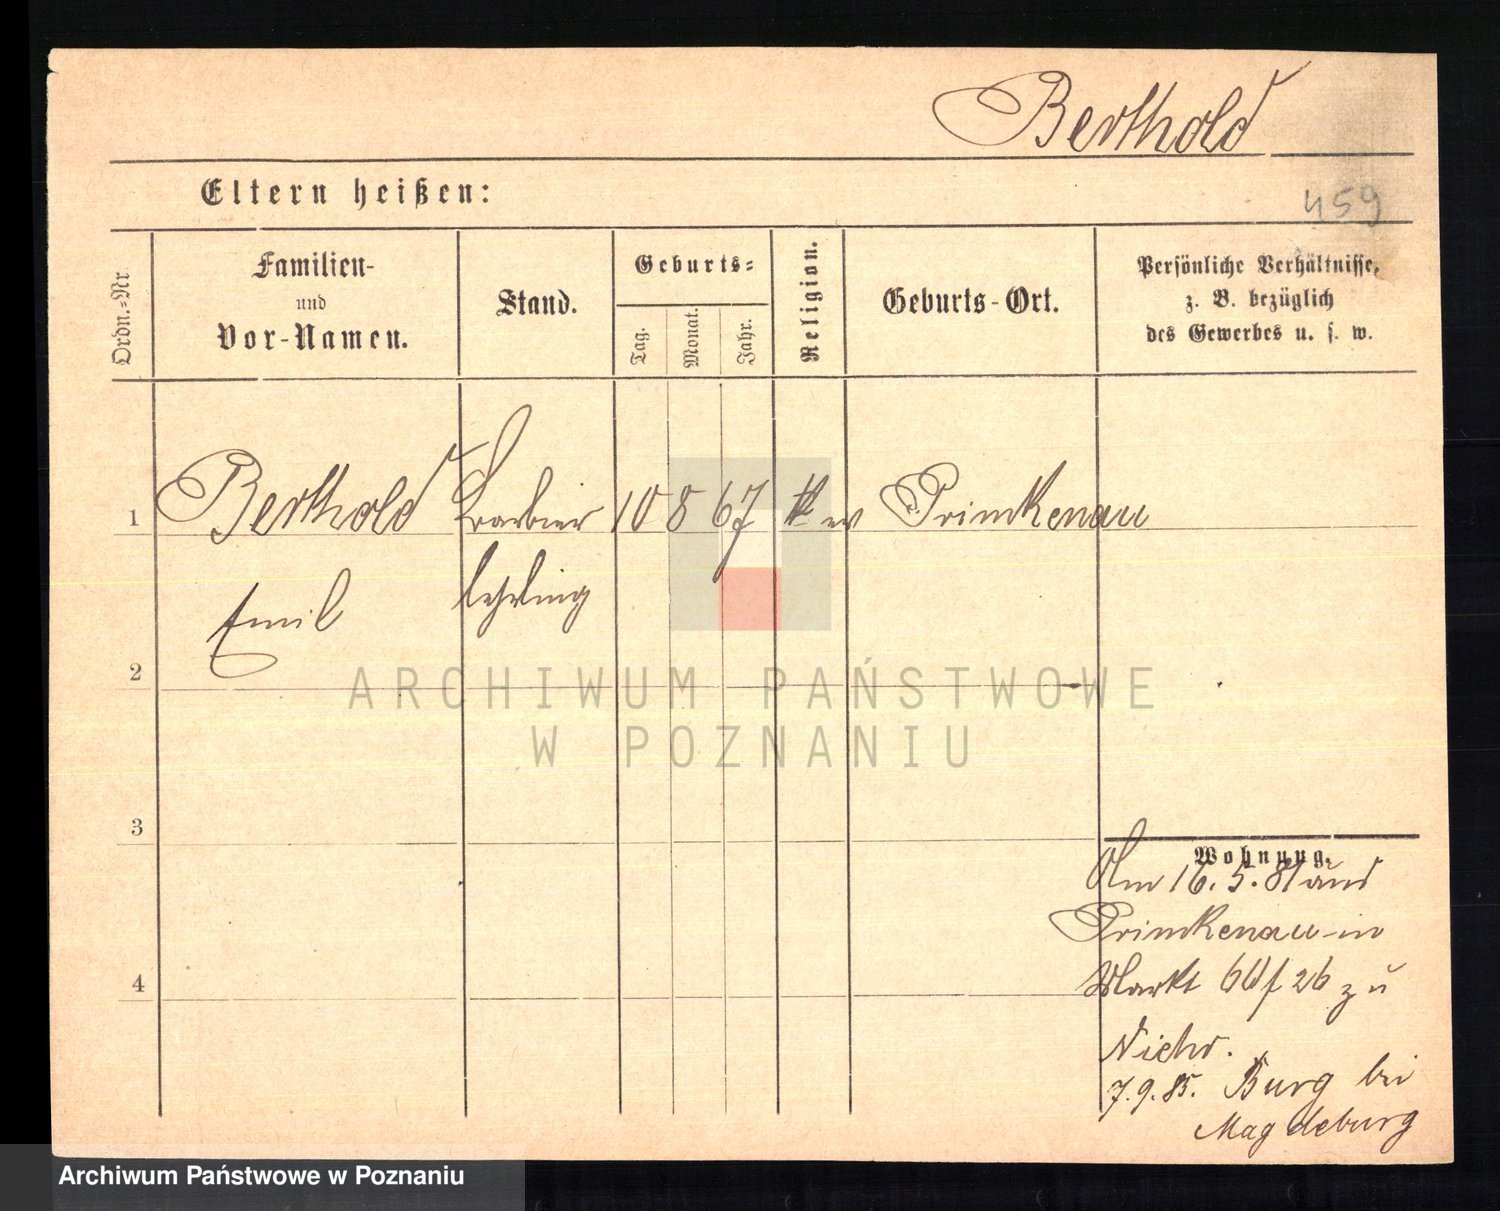 Berthold
Eltern heißen:
459
Ordn.-Nr
Familien-
und
Vor-Namen.
Stand.
Geburts-
Tag.
Monat.
Jahr.
Religion.
Geburts-Ort.
Persönliche Verhältnisse,
z. B. bezüglich
des Gewerbes u. s. w.
1 Berthold Barbier 10 8 67 ev Primkenau
Emil lehrling
2
ARCHIWUM PAŃSTWOWE
W POZNANIU
3
Wohnung.
Am 16. 5. 81 aus
Primkenau in
4
Markt 60/ 26 zu
7. 9. 85. Burg bei
Magdeburg
Archiwum Państwowe w Poznaniu